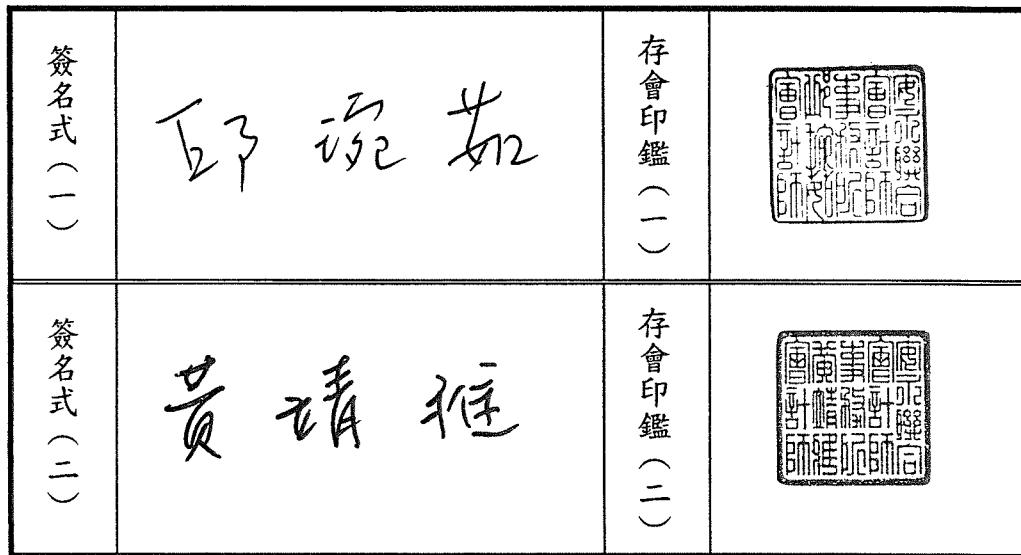 簽名式（一）
邱琬茹
存會印鑑（一）
安永聯合
會計師
事務所
邱琬茹
會計師
簽名式（二）
黃靖雅
存會印鑑（二）
安永聯合
會計師
事務所
黃靖雅
會計師